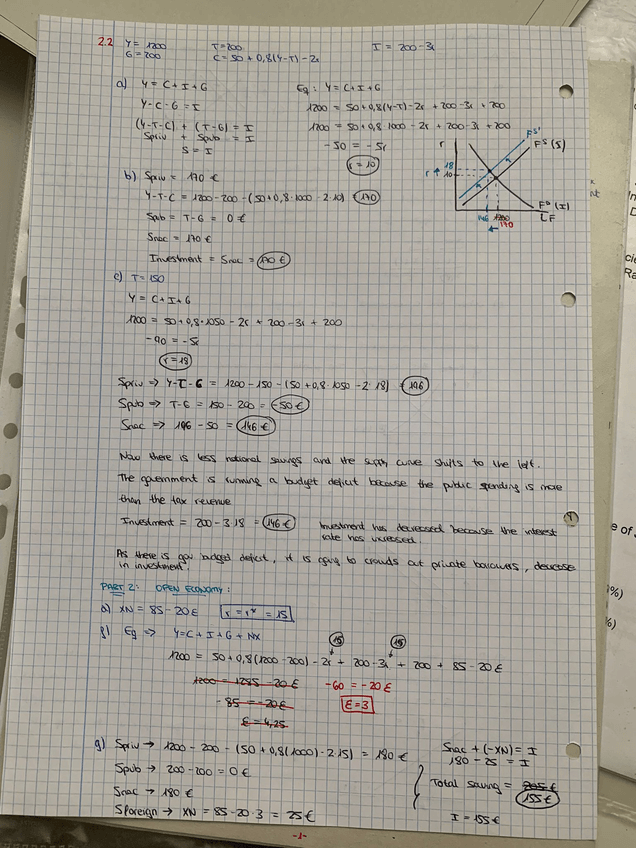 2.2 Y = 1200 T = 200 I = 200 - 3r
G = 200 C = 50 + 0,8(Y-T) - 2r
a) Y = C + I + G Eq: Y = C + I + G
Y - C - G = I 1200 = 50 + 0,8(Y-T) - 2r + 200 - 3r + 200
(Y-T-C) + (T-G) = I 1200 = 50 + 0,8·1000 - 2r + 200 - 3r + 200
Spriv + Spub = I -50 = -5r
S = I r = 10
r FS' FS (S)
r ↑ 18
10
FD (I)
146 170 LF
b) Spriv = 170 €
Y-T-C = 1200 - 200 - (50 + 0,8·1000 - 2·10) = 170
Spub = T - G = 0 €
Snac = 170 €
Investment = Snac = 170 €
c) T = 150
Y = C + I + G
1200 = 50 + 0,8·1050 - 2r + 200 - 3r + 200
-90 = -5r
r = 18
Spriv => Y-T-G = 1200 - 150 - (50 + 0,8·1050 - 2·18) = 196
Spub => T-G = 150 - 200 = -50 €
Snac => 196 - 50 = 146 €
Now there is less national savings and the supply curve shifts to the left.
The government is running a budget deficit because the public spending is more
than the tax revenue
Investment = 200 - 3·18 = 146 € Investment has decreased because the interest
rate has increased.
As there is gov budget deficit, it is going to crowds out private borrowers, decrease
in investment.
PART 2: OPEN ECONOMY:
a) XN = 85 - 20 ε r = r* = 15
f) Eq => Y = C + I + G + NX 15 15
1200 = 50 + 0,8(1200-200) - 2r + 200 - 3r + 200 + 85 - 20 ε
1200 = 1285 - 20 ε -60 = -20 ε
-85 = -20 ε ε = 3
ε = 4,25
g) Spriv → 1200 - 200 - (50 + 0,8(1000) - 2·15) = 180 € Snac + (-XN) = I
Spub → 200 - 200 = 0 € 180 - 25 = I
Snac → 180 € Total saving = 205 € 155 €
Sforeign → XN = 85 - 20·3 = 25 € I = 155 €
-1-